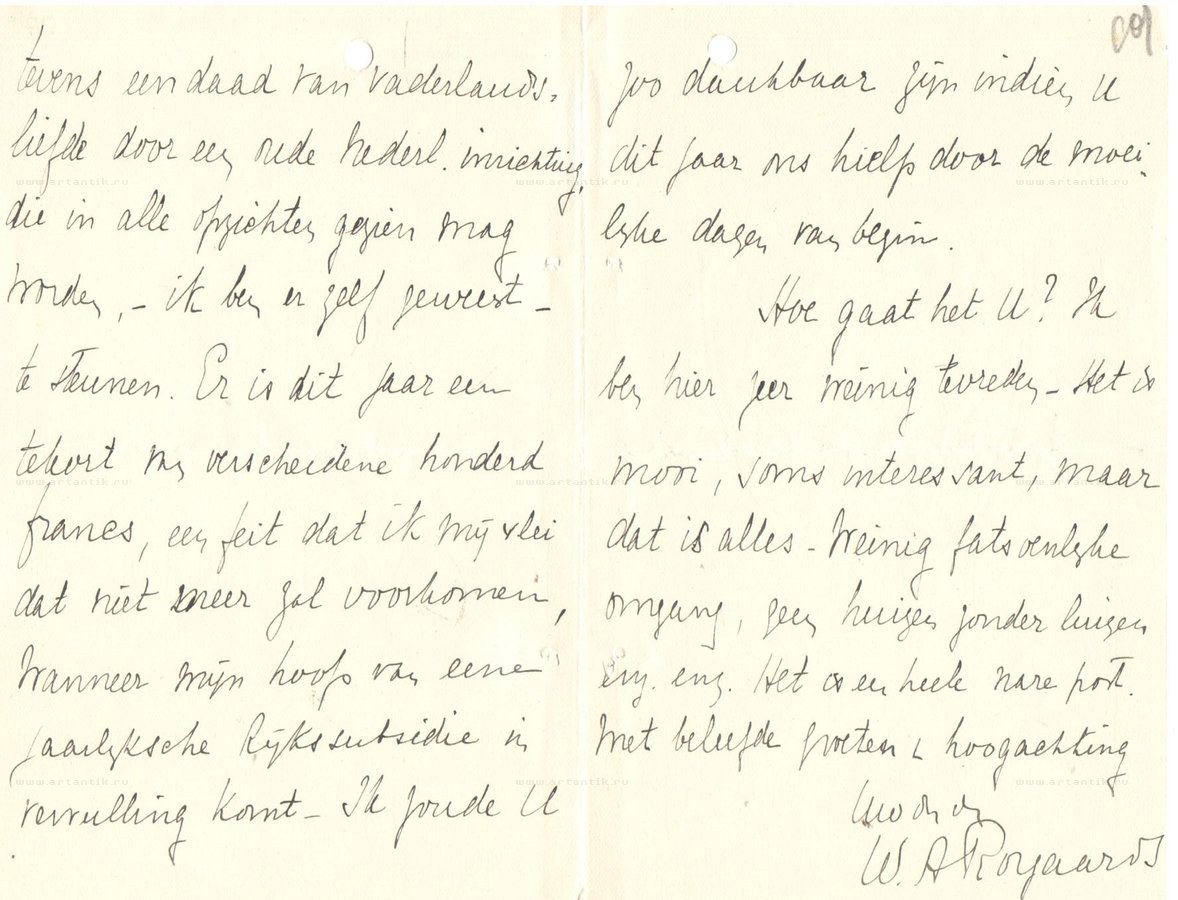 tevens een daad van vaderlands-
liefde door een oude Nederl. inrichting,
die in alle opzichten gezien mag
worden, - ik ben er zelf geweest -
te steunen. Er is dit jaar een
tekort van verscheidene honderd
francs, een feit dat ik mij vlei
dat niet meer zal voorkomen,
wanneer mijn hoop van eene
jaarlyksche Rijkssubsidie in
vervulling komt - Ik zoude U
zoo dankbaar zijn indien U
dit jaar ons hielp door de moei-
lyke dagen van begin.
Hoe gaat het U? Ik
ben hier zeer weinig tevreden - Het is
mooi, soms interessant, maar
dat is alles - Weinig fatsoenlyke
omgang, geen huizen zonder luizen
enz. enz. Het is een heele nare post.
Met beleefde groeten & hoogachting
Uw
W. A Royaards
www.artantik.ru